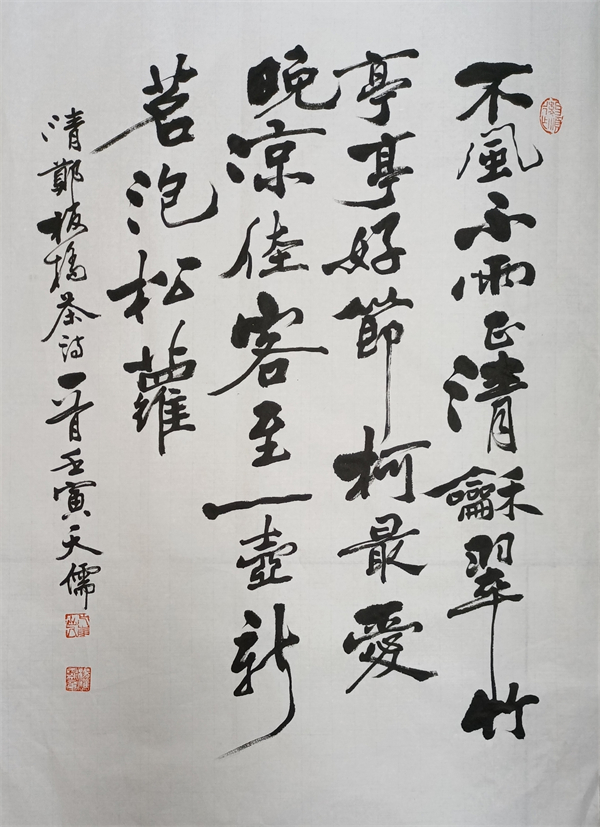 不風不雨正清龢翠竹
亭亭好節柯最愛
晚涼佳客至一壺新
茗泡松蘿
清鄭板橋茶詩一首壬寅天儒